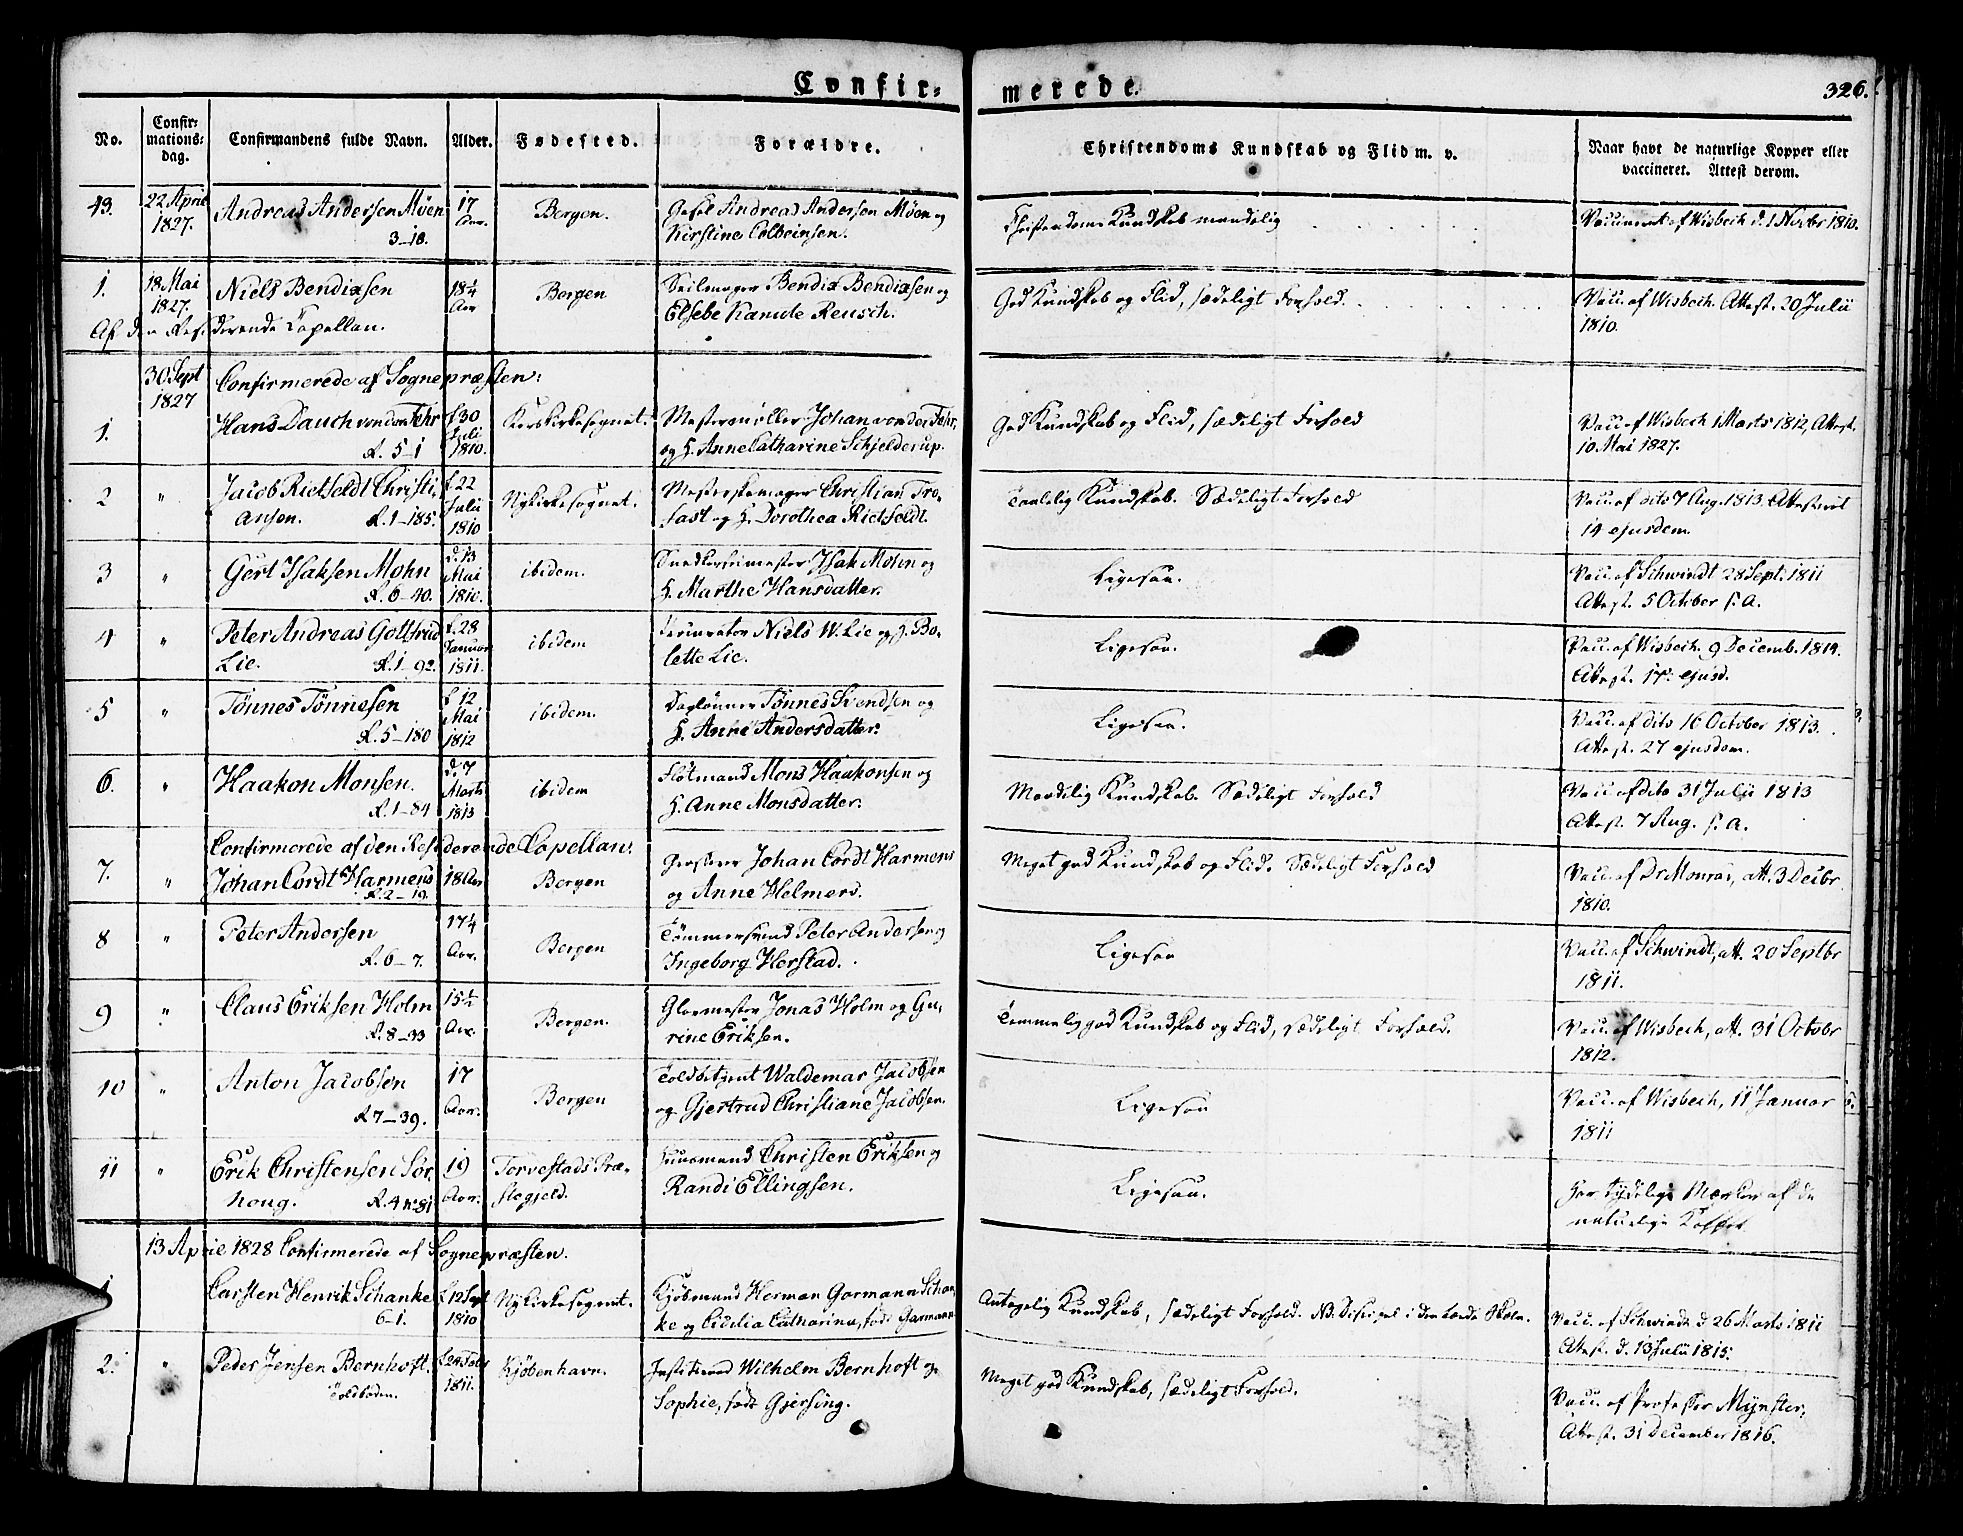 Confir-
merede.
326.
No.
Confir-
mations-
dag.
Confirmandens fulde Navn.
Alder.
Fødested.
Forældre.
Christendoms Kundskab og Flid m. v.
Naar havt de naturlige Kopper eller
vaccineret. Attest derom.
43. 22 April Andreas Andersen Möen 17 Bergen. Andreas Andersen Möen og
1827. 3-18. Aar. Kirstine Colbeinsen.
Christendoms Kundskab maadelig
Vaccineret af Wisbech d. 1 Novbr 1810.
1. 18 Mai Niels Bendixsen 18¼ Bergen Seilmager Bendix Bendixsen og
1827. Aar Elsebe Kamute Reusch.
God Kundskab og Flid, sædeligt Forhold.
Vacc. af Wisbech. Attest. 20 Julii
1810.
Af den Residerende Capellan.
30 Sept Confirmerede af Sognepræsten:
1827
1. Hans Dauch von der Fehr f. 30 Korskirkesognet. Johan von der Fehr,
R. 5-1 Juli 1810. og H. Anne Catharine Schjelderup.
God Kundskab og Flid, sædeligt Forhold
Vacc. af Wisbech 1 Marts 1812, Attest.
10 Mai 1827.
2 " Jacob Rietfeldt Christi- f. 22 Nykirkesognet. Christian Tro-
ansen. R. 1-185. Julii 1810 fast og H. Dorothea Rietfeldt.
Taalelig Kundskab. Sædeligt Forhold
Vacc. af dito 7 Aug. 1813. Attesteret
14 ejusdem.
3 " Gert Isaksen Mohn d. 13 ibidem. Snedkersmester Isak Mohn og
R. 6-40. Mai 1810. H. Marthe Hansdatter.
Ligesaa.
Vacc. af Schwindt 28 Sept. 1811
Attest. 5 October s. a.
4 " Peter Andreas Gottfried f. 28 ibidem Niels W. Lie og H. Bo-
Lie. R. 1-92. Januar 1811. lette Lie.
Ligesaa.
Vacc. af Wisbech. 9 Decemb. 1814.
Attest. 17 ejusd.
5 " Tönnes Tönnesen f. 12 ibidem. Daglønner Tönnes Svendsen og
R. 5-180 Mai 1812 H. Anne Andersdatter.
Ligesaa.
Vacc. af dito 16 October 1813.
Attest. 27 ejusdem.
6. " Haakon Monsen. d. 7 ibidem Mons Haakonsen og
R. 1-84 Marts 1813 H. Anne Monsdatter.
Maadelig Kundskab. Sædeligt Forhold
Vacc. af dito 31 Julii 1813
Attest. 7 Aug. s. a.
Confirmerede af den Residerende Capellan:
7. " Johan Cordt Harmens 18 Aar Bergen Johan Cordt Harmens
R. 2-19. og Anne Helmers.
Meget god Kundskab og Flid. Sædeligt Forhold
Vacc. af Dr Monrad, att. 3 Decbr
1810.
8 " Peter Andersen 17¼ Bergen Tömmermand Peter Andersen og
R. 6-7. Aar. Ingeborg Herstad.
Ligesaa
Vacc. af Schwindt, att. 20 Septbr
1811.
9 " Claus Eriksen Holm 15½ Bergen. Glarmester Jonas Holm og Gu-
R. 8-33 Aar. rine Eriksen.
Temmelig god Kundskab og Flid, sædeligt Forhold.
Vacc. af Wisbech, att. 31 Octobr
1812.
10 " Anton Jacobsen 17 Bergen Toldbetjent Waldemar Jacobsen
R 7-39. Aar. og Gjertrud Christiane Jacobsen.
Ligesaa
Vacc. af Wisbech, 11 Januar
1811
11 " Erik Christensen Sör- 19 Torvestads Præ- Huusmand Christen Eriksen og
houg. R. 4 n. 81 Aar. stegjeld. Randi Ellingsen.
Ligesaa.
Har tydelige Mærker af de
naturlige Kopper
13 April 1828 Confirmerede af Sognepræsten.
1 Carsten Henrik Schanke f. 12 Sept Nykirkesognet. Kjøbmand Herman Garmann Schan-
6-1. 1810 ke og Cecilia Catharina, født Garmann
Antagelig Kundskab, sædeligt Forhold. NB. Discipel i den lærde Skole.
Vacc. af Schwindt d 26 Marts 1811
Attest. d. 13 Julii 1815.
2. " Peder Jensen Bernhoft. f. 24 Febr Kjøbenhavn. Justitsraad Wilhelm Bernhoft og
Toldboden. 1811. Sophie, født Gjersing.
Meget god Kundskab, sædeligt Forhold.
Vacc. af Professor Mynster,
Attest. 31 December 1816.